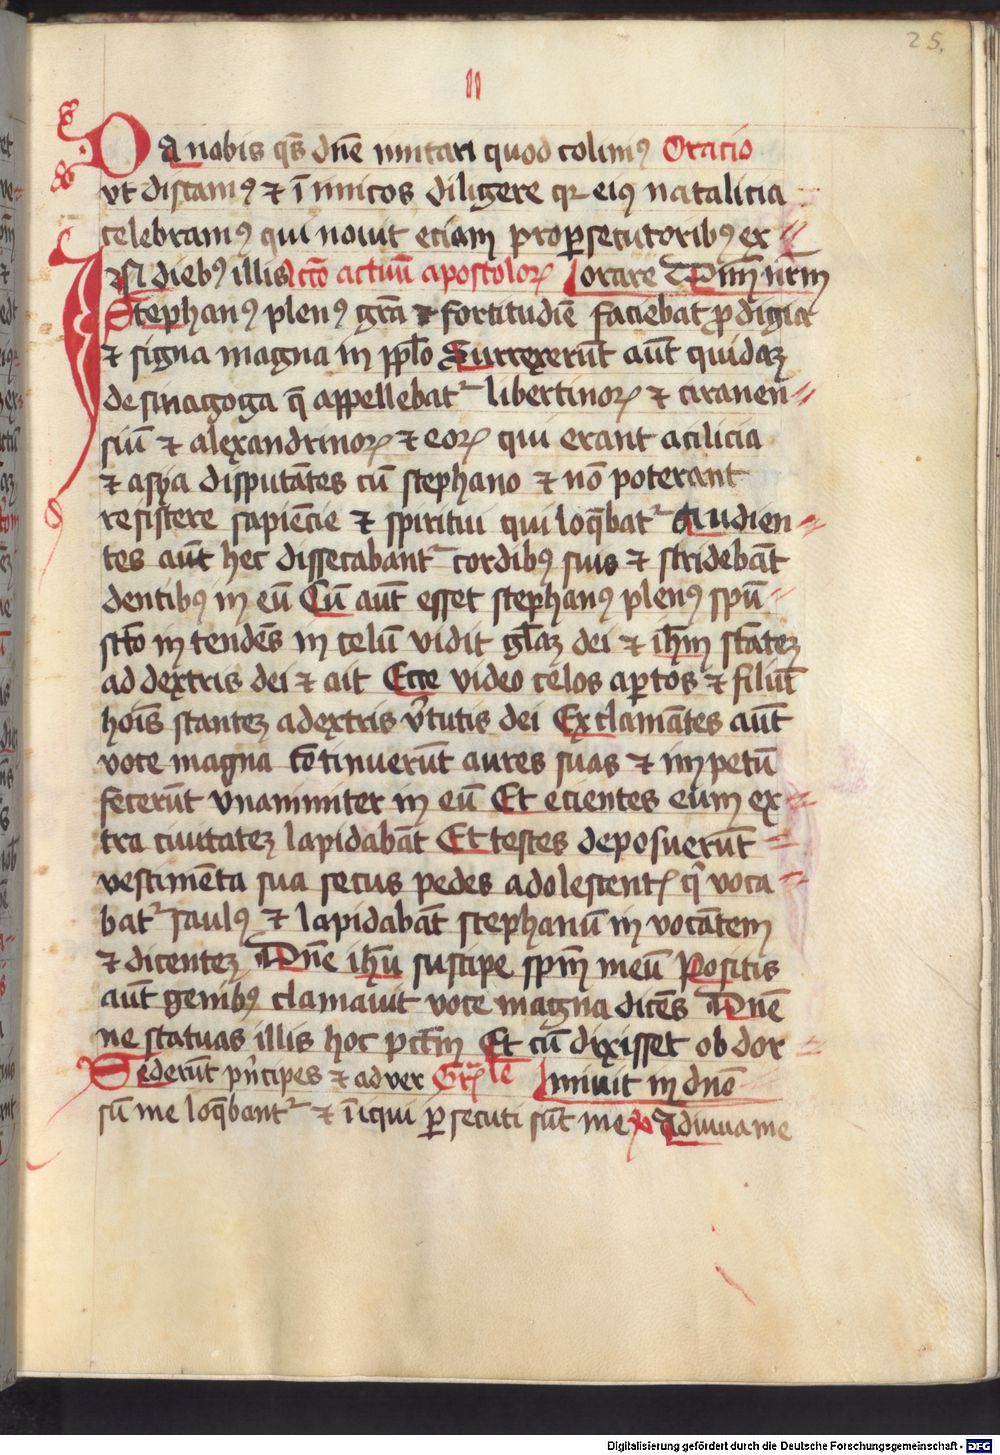 25.
II
Da nobis qs dne imitari quod colimꝰ Oracio
vt discamꝰ ⁊ inimicos diligere qr eiꝰ natalicia
celebramꝰ qui nouit eciam pro ꝑsecutoribꝰ ex
IN diebꝰ illis lcco actuu apostoloꝝ orare Dnm nrm
Stephanꝰ plenꝰ gra ⁊ fortitudie faciebat prodigia
⁊ signa magna in pplo Surrexerut aut quidaz
de sinagoga q appellebat libertinoꝝ ⁊ ciranen
siu ⁊ alexandrinoꝝ ⁊ eoꝝ qui erant a cilicia
⁊ asya disputates cu stephano ⁊ no poterant
resistere sapiecie ⁊ spiritui qui loqbat Audien
tes aut hec dissecabant cordibꝰ suis ⁊ stridebat
dentibꝰ in eu Cu aut esset stephanꝰ plenꝰ spu
scto intendes in celu vidit glaz dei ⁊ ihm statez
ad dextris dei ⁊ ait Ecce video celos aꝑtos ⁊ filiu
hois stantez a dextris vtutis dei Exclamates aut
voce magna cotinuerut aures suas ⁊ impetu
fecerut vnanimiter in eu Et eicientes eum ex
tra ciuitatez lapidabat Et testes deposuerut
vestimeta sua secus pedes adolescent q voca
bat saulꝰ ⁊ lapidabat stephanu inuocatem
⁊ dicentez Dne ihu suscipe spm meu Positis
aut genibꝰ clamauit voce magna dices Dne
ne statuas illis hoc pctm Et cu dixisset obdor
Sederut pncipes ⁊ aduer Gr le miuit in dno
su me loqbant ⁊ iniqui ꝑsecuti sut me adiuua me
Digitalisierung gefördert durch die Deutsche Forschungsgemeinschaft - DFG